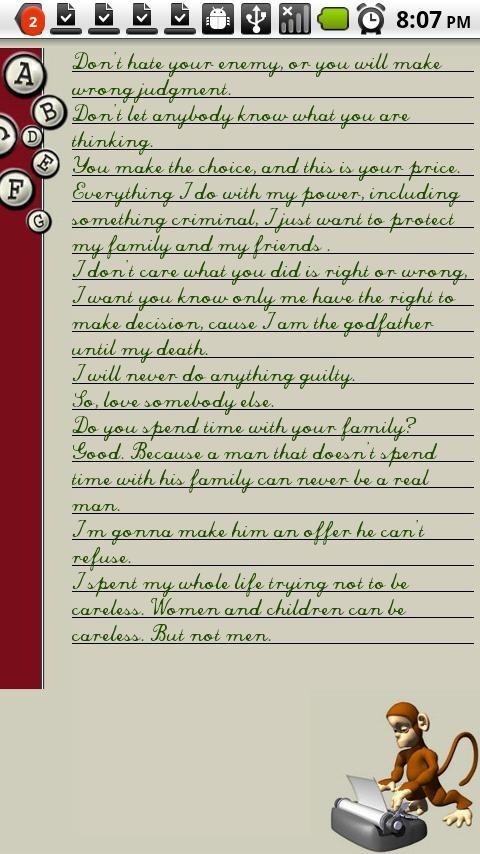 2
8:07 PM
A
B
D
E
F
G
Don't hate your enemy, or you will make
wrong judgment.
Don't let anybody know what you are
thinking.
You make the choice, and this is your price.
Everything I do with my power, including
something criminal, I just want to protect
my family and my friends .
I don't care what you did is right or wrong,
I want you know only me have the right to
make decision, cause I am the godfather
until my death.
I will never do anything guilty.
So, love somebody else.
Do you spend time with your family?
Good. Because a man that doesn't spend
time with his family can never be a real
man.
I'm gonna make him an offer he can't
refuse.
I spent my whole life trying not to be
careless. Women and children can be
careless. But not men.